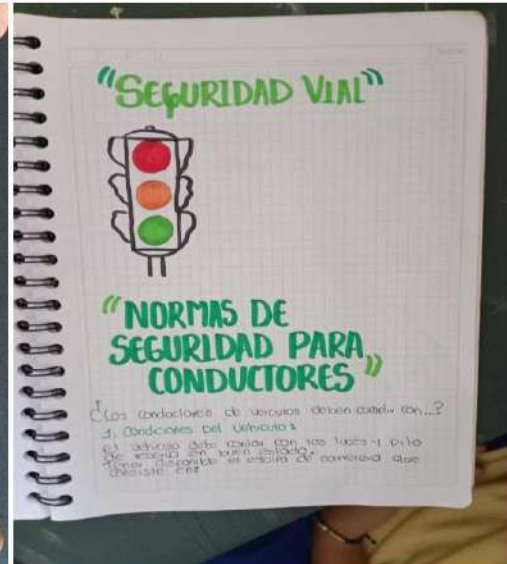 "SEGURIDAD VIAL"
"NORMAS DE
SEGURIDAD PARA
CONDUCTORES"
¿Los conductores de veiculos deben cumplir con...?
1. Condiciones del vehiculo:
El vehiculo debe contar con las luces y pito
de reversa en buen estado.
Tener disponible el equipo de carretera que
consiste en: